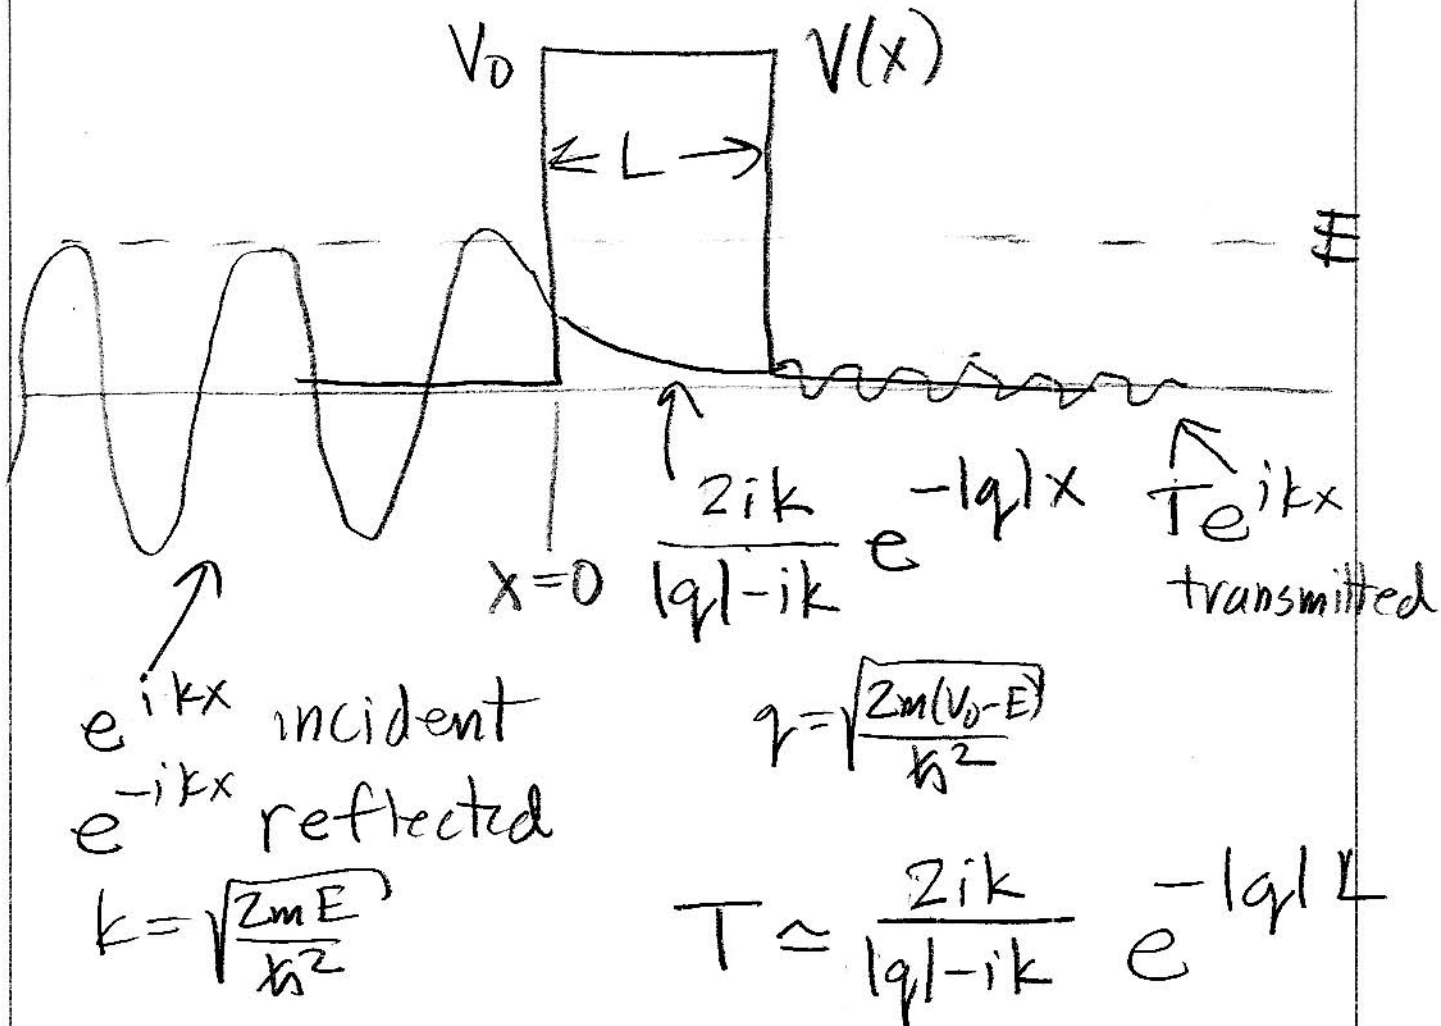 V₀ V(x)
← L →
E
x=0
2ik/(|q|-ik) e^{-|q|x}
Te^{ikx}
transmitted
e^{ikx} incident
e^{-ikx} reflected
k=√(2mE/ħ²)
q=√(2m(V₀-E)/ħ²)
T≃ 2ik/(|q|-ik) e^{-|q|L}